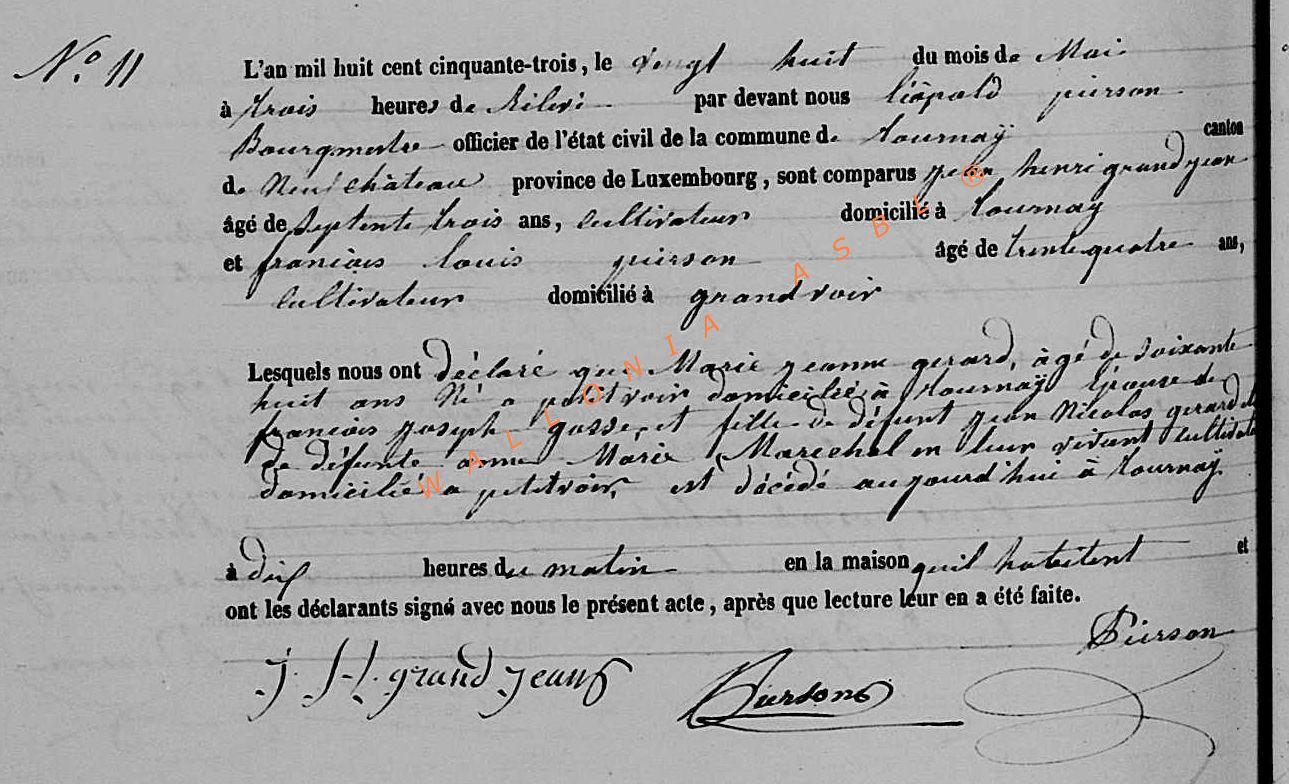 N.° 11
L'an mil huit cent cinquante-trois, le vingt huit du mois de Mai
à trois heures de par devant nous léopold pierson
Bourgmestre officier de l'état civil de la commune de tournaÿ canton
de Neufchâteau province de Luxembourg, sont comparus jean henri grandjean
âgé de septente trois ans, cultivateur domicilié à tournaÿ
et francois louis pierson âgé de trente quatre ans,
cultivateur domicilié à grandvoir
Lesquels nous ont déclaré que Marie jeanne gerard, âgé de soixante
huit ans Né a petitvoir domicilié à tournaÿ Epouse de
francois joseph et fille de défunt jean Nicolas gerard et
de défunte anne Marie Marechal en leur vivant cultivate
domicilié a petitvoir, est décédé aujourd'hui à tournaÿ
à dix heures du matin en la maison qu'il habitent et
ont les déclarants signé avec nous le présent acte, après que lecture leur en a été faite.
Pierson
J. H. grandjean
Pierson
WALLONIA ASBL ®